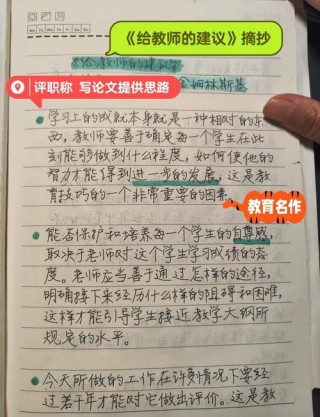 《给教师的建议》摘抄
给教师的建议
评职称 写论文提供思路
姆林斯基
学习上的成就本身就是一种相对的东
西，教师要善于确定每一个学生在此
刻能够做到什么程度，如何使他的
智力才能得到进一步的发展，这是教
育技巧的一个非常重要的因素
教育名作
能否保护和培养每一个学生的自尊感，
取决于老师对这个学生学习成绩的态
度。老师应当善于通过怎样的途径，
明确接下来经历什么样的阻碍和困难，
这样才能引导学生接近教学大纲所
规定的水平。
今天所做的工作在许多情况下要经
过若干年才能对它做出评价。这是教